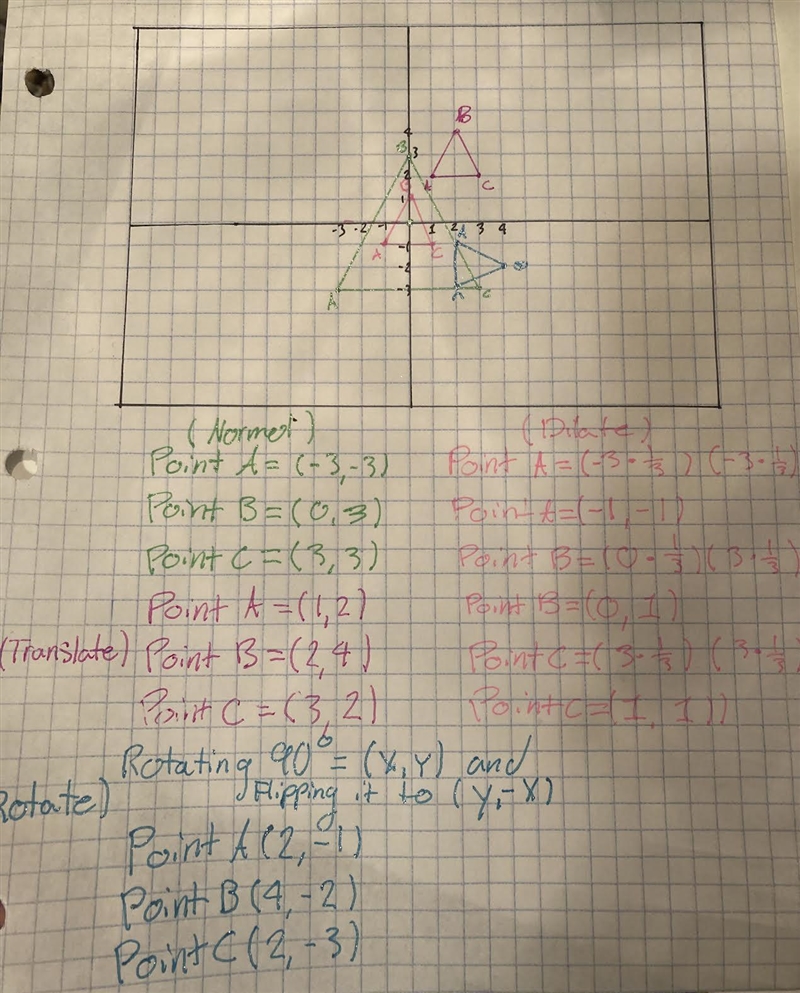 B
4
B
3
2
A
C
B
1
-3 -2 -1 1 2 3 4
A
A
C
-1
-2
-3
A
A
C
(Normal) (Dilate)
Point A = (-3,-3) Point A = (-3 · 1/3) (-3 · 1/3)
Point B = (0,3) Point A = (-1,-1)
Point C = (3,3) Point B = (0 · 1/3)(3 · 1/3)
Point A = (1,2) Point B = (0,1)
(Translate) Point B = (2,4) Point C = (3 · 1/3) (3 · 1/3)
Point C = (3,2) Point C = (1,1))
Rotating 90° = (X,Y) and
Rotate) Flipping it to (Y,-X)
Point A (2,-1)
Point B (4,-2)
Point C (2,-3)